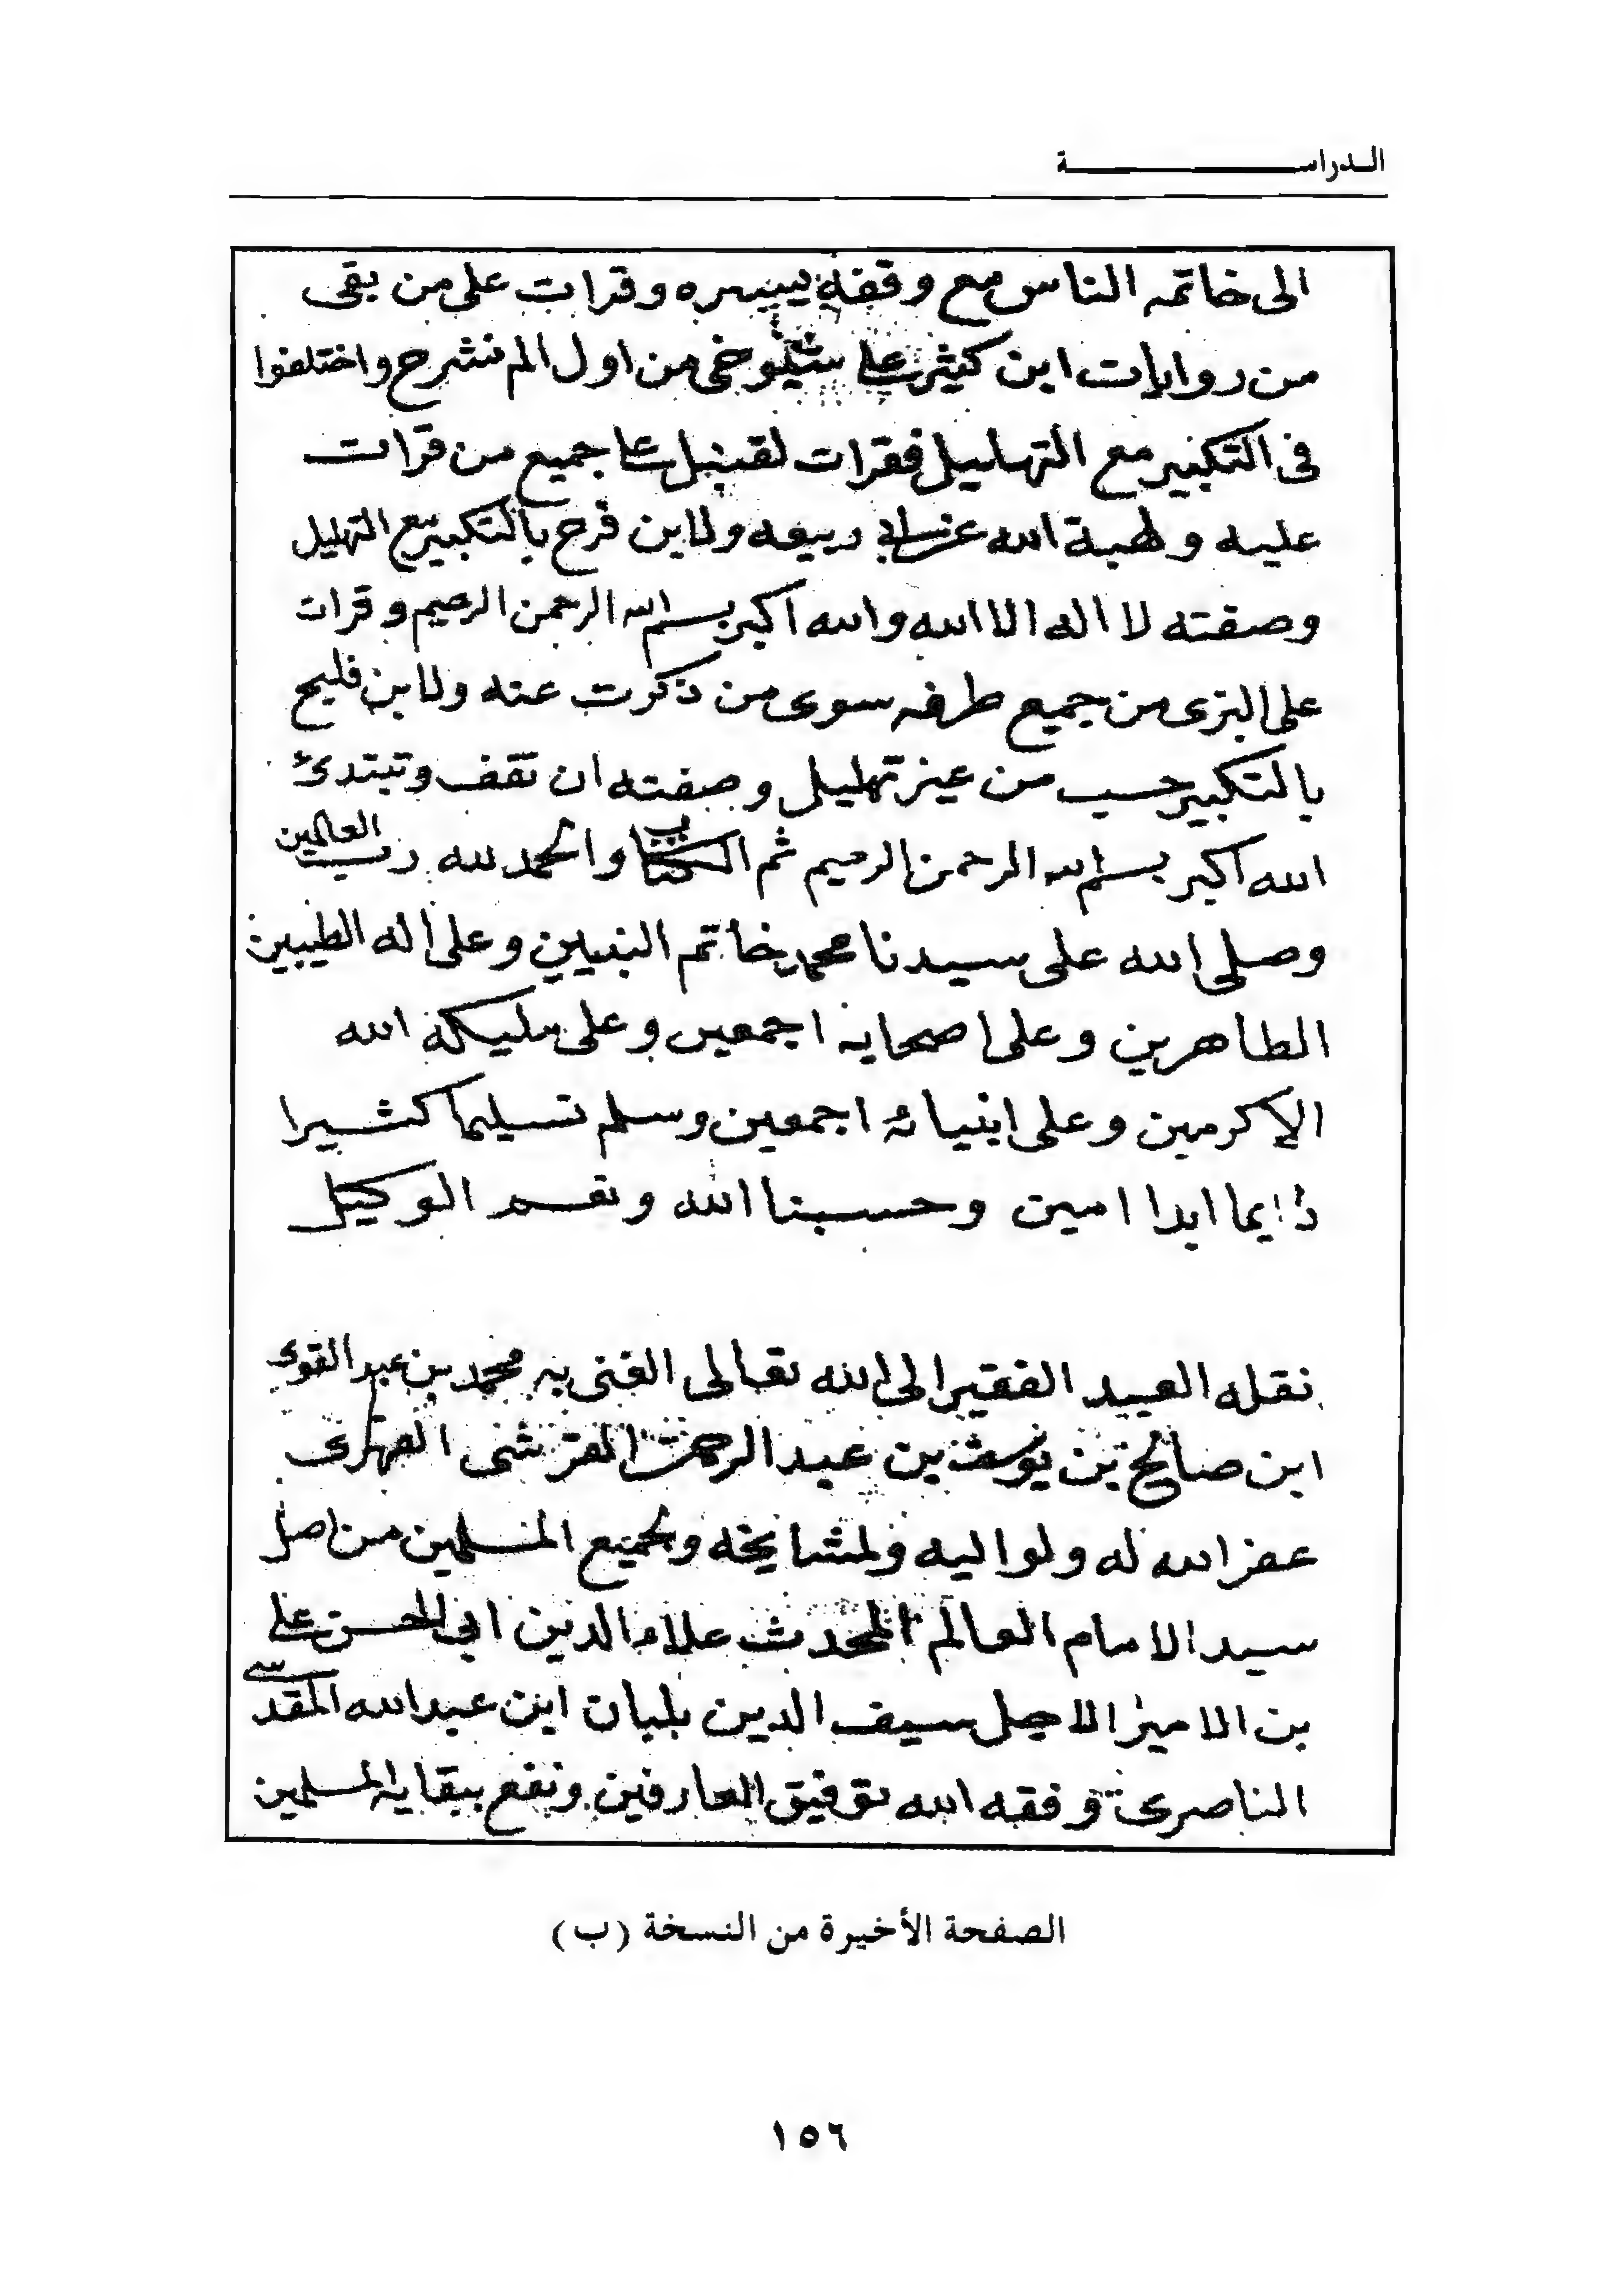 الدراسة
الى خاتمه الناس مع وقفة يسيره وقرات على من بقى
من روايات ابن كثير على شيوخى من اول الم نشرح واختلفوا
فى التكبير مع التهليل فقرات لقنبل على جميع من قرات
عليه ولهبة الله عن ابى ربيعه ولابن فرح بالتكبير مع التهليل
وصفته لا اله الا الله والله اكبر بسم الله الرحمن الرحيم وقرات
على البزى من جميع طرقه سوى من ذكرت عنه ولابن فليح
بالتكبير حسب من غير تهليل وصفته ان تقف وتبتدئ
الله اكبر بسم الله الرحمن الرحيم ثم الكتاب والحمد لله رب العالمين
وصلى الله على سيدنا محمد خاتم النبيين وعلى اله الطيبين
الطاهرين وعلى اصحابه اجمعين وعلى مليكة الله
الاكرمين وعلى انبيائه اجمعين وسلم تسليما كثيرا
دايما ابدا امين وحسبنا الله ونعم الوكيل
نقله العبد الفقير الى الله تعالى الغنى به محمد بن عبد القوى
ابن صالح بن يوسف بن عبد الرحمن القرشى الفهرى
غفر الله له ولوالديه ولمشايخه ولجميع المسلمين من اصل
سيد الامام العالم المحدث علاء الدين ابى الحسن على
بن الامير الاجل سيف الدين بلبان ابن عبد الله المقدسى
الناصرى وفقه الله توفيق العارفين ونفع ببقايه المسلمين
الصفحة الأخيرة من النسخة (ب)
١٥٦